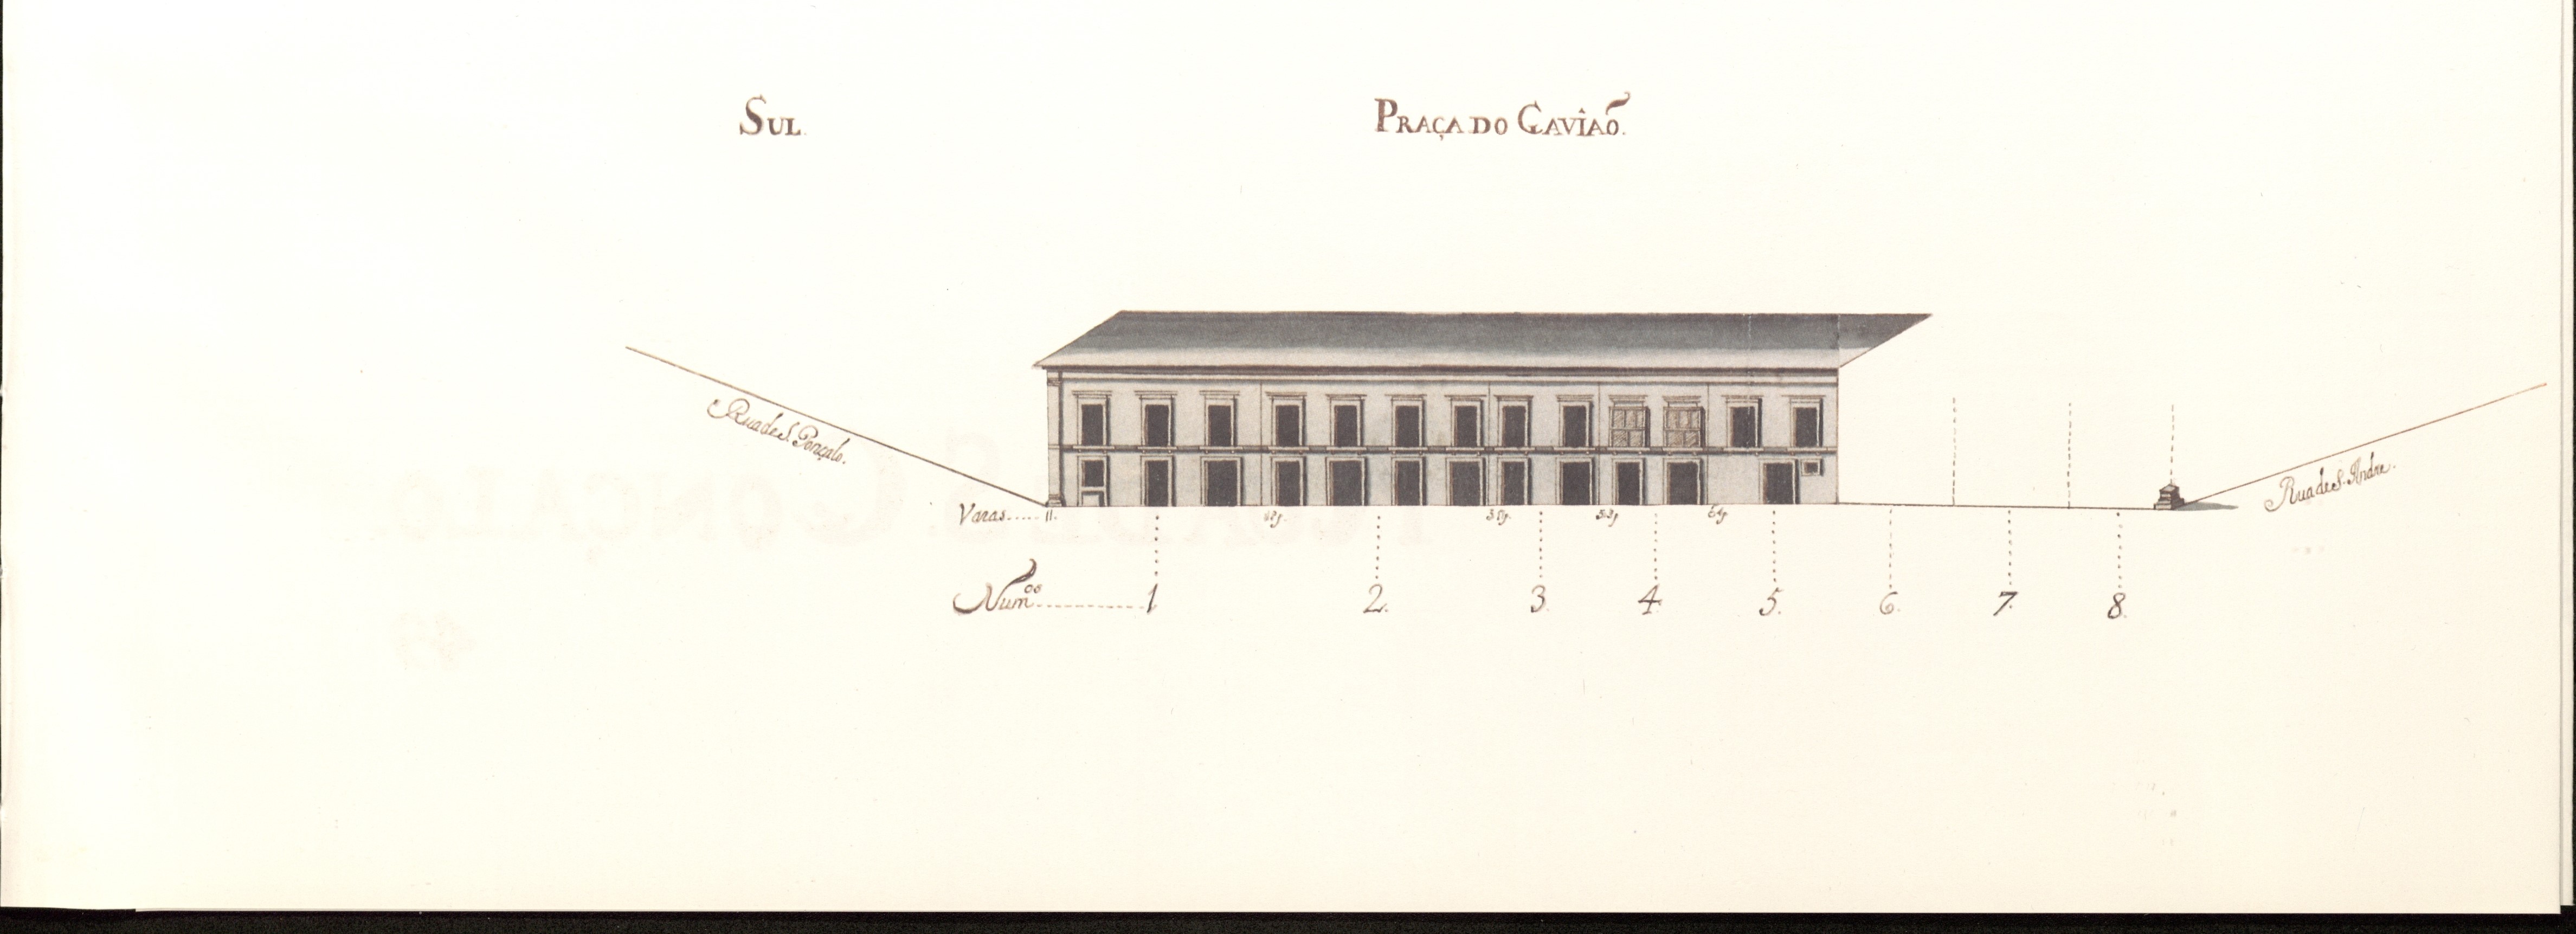 SUL.
PRAÇA DO GAVIAÕ.
Rua de S. Gonçalo.
Rua de S. Andre.
Varas..... 11.
Num.os 1 2. 3. 4. 5. 6. 7. 8.